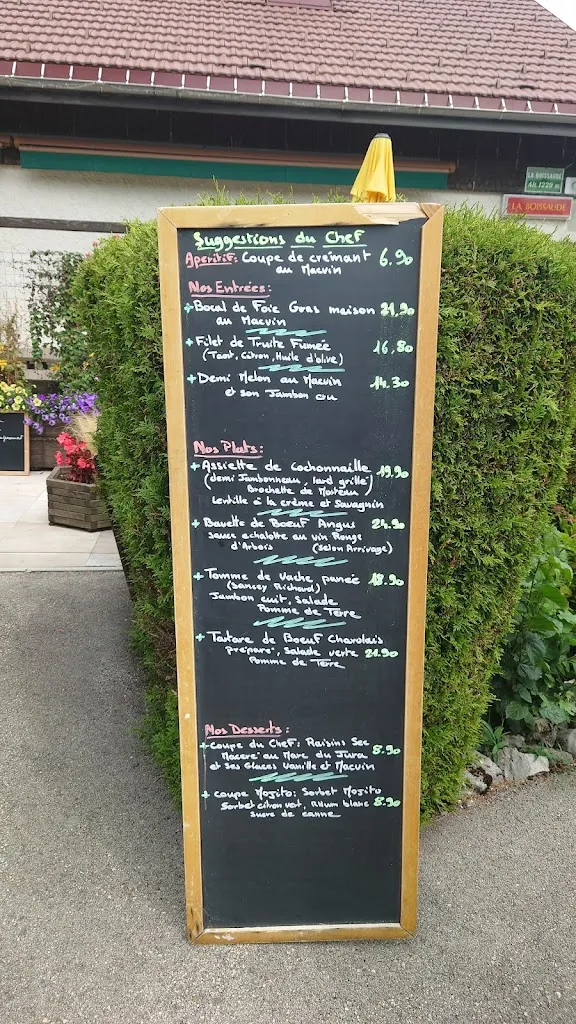 LA BOISSAUDE
Alt. 1229 m
LA BOISSAUDE
Suggestions du Chef
Aperitif: Coupe de crémant 6.90
au Macvin
Nos Entrées:
+ Bocal de Foie Gras maison 21,90
au Macvin
+ Filet de Truite Fumée 16,80
(Toast, Citron, Huile d'olive)
+ Demi Melon au Macvin 14.30
et son Jambon cru
Nos Plats:
+ Assiette de Cochonnaille 19.90
(demi Jambonneau, lard grillé)
Brochette de Morteau
Lentille à la crème et Savagnin
+ Bavette de Boeuf Angus 24.90
sauce echalotte au vin Rouge
d'Arbois (Selon Arrivage)
+ Tomme de vache panée 18.90
(Sancey Richard)
Jambon cuit, salade
Pomme de Terre
+ Tartare de Boeuf Charolais
préparé, salade verte 21.90
Pomme de Terre
Nos Desserts:
+ Coupe du Chef: Raisins Sec
Maceré au Marc du Jura 8.90
et ses Glaces Vanille et Macvin
+ Coupe Mojito: Sorbet Mojito
Sorbet citron vert, Rhum blanc 8.90
sucre de canne